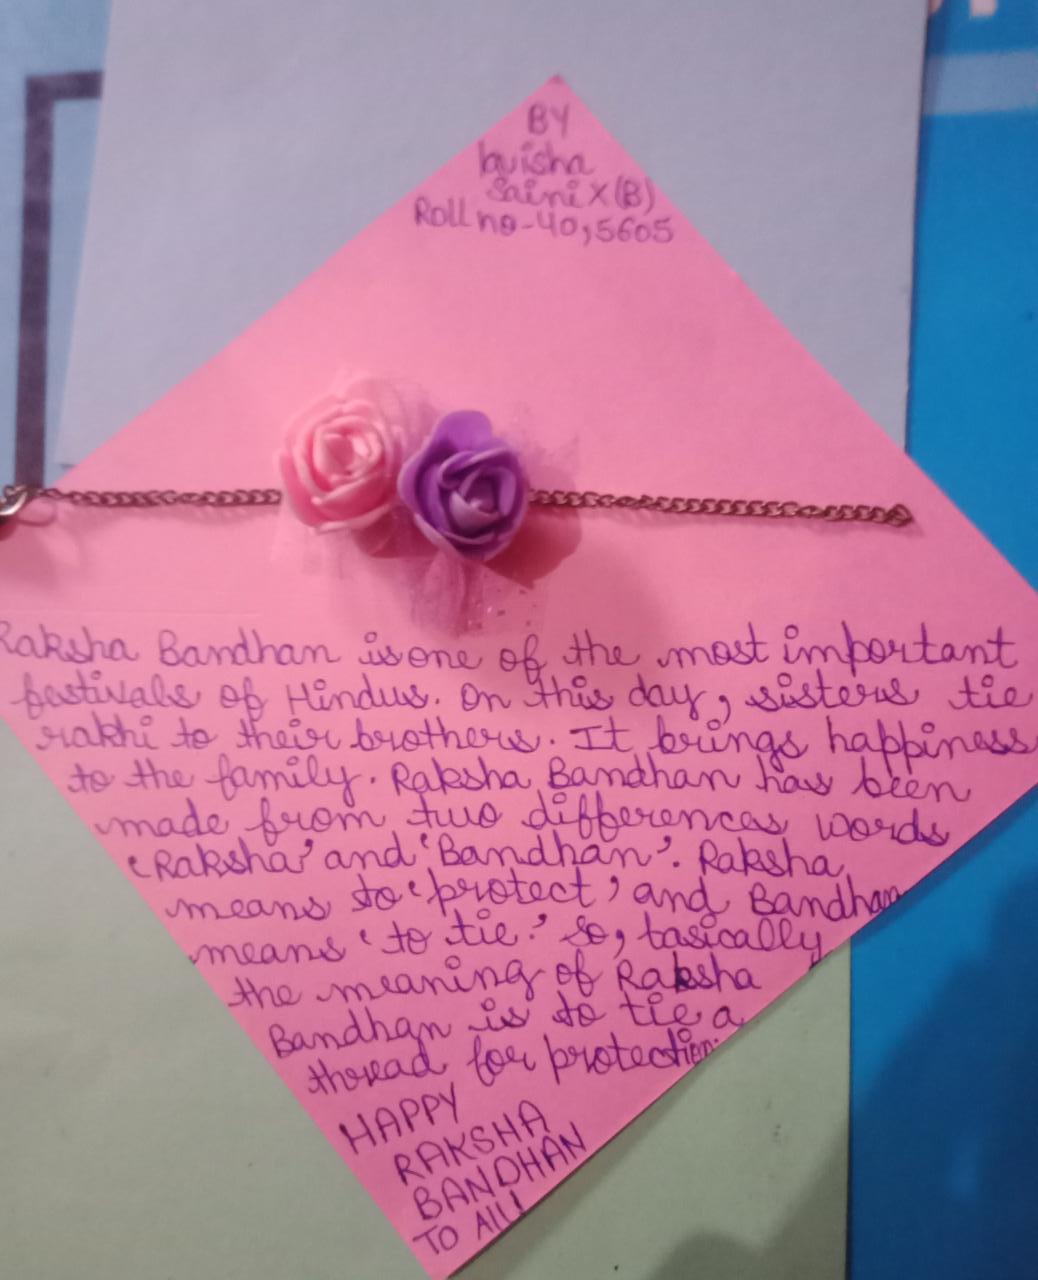 BY
lavisha
Saini X(B)
Roll no-40,5605
Raksha Bandhan is one of the most important
festivals of Hindus. On this day, sisters tie
rakhi to their brothers. It brings happiness
to the family. Raksha Bandhan has been
made from two differences words
‘Raksha’ and ‘Bandhan’. Raksha
means to ‘protect’ and Bandhan
means ‘to tie.’ So, basically
the meaning of Raksha
Bandhan is to tie a
thread for protection.
HAPPY
RAKSHA
BANDHAN
TO All!